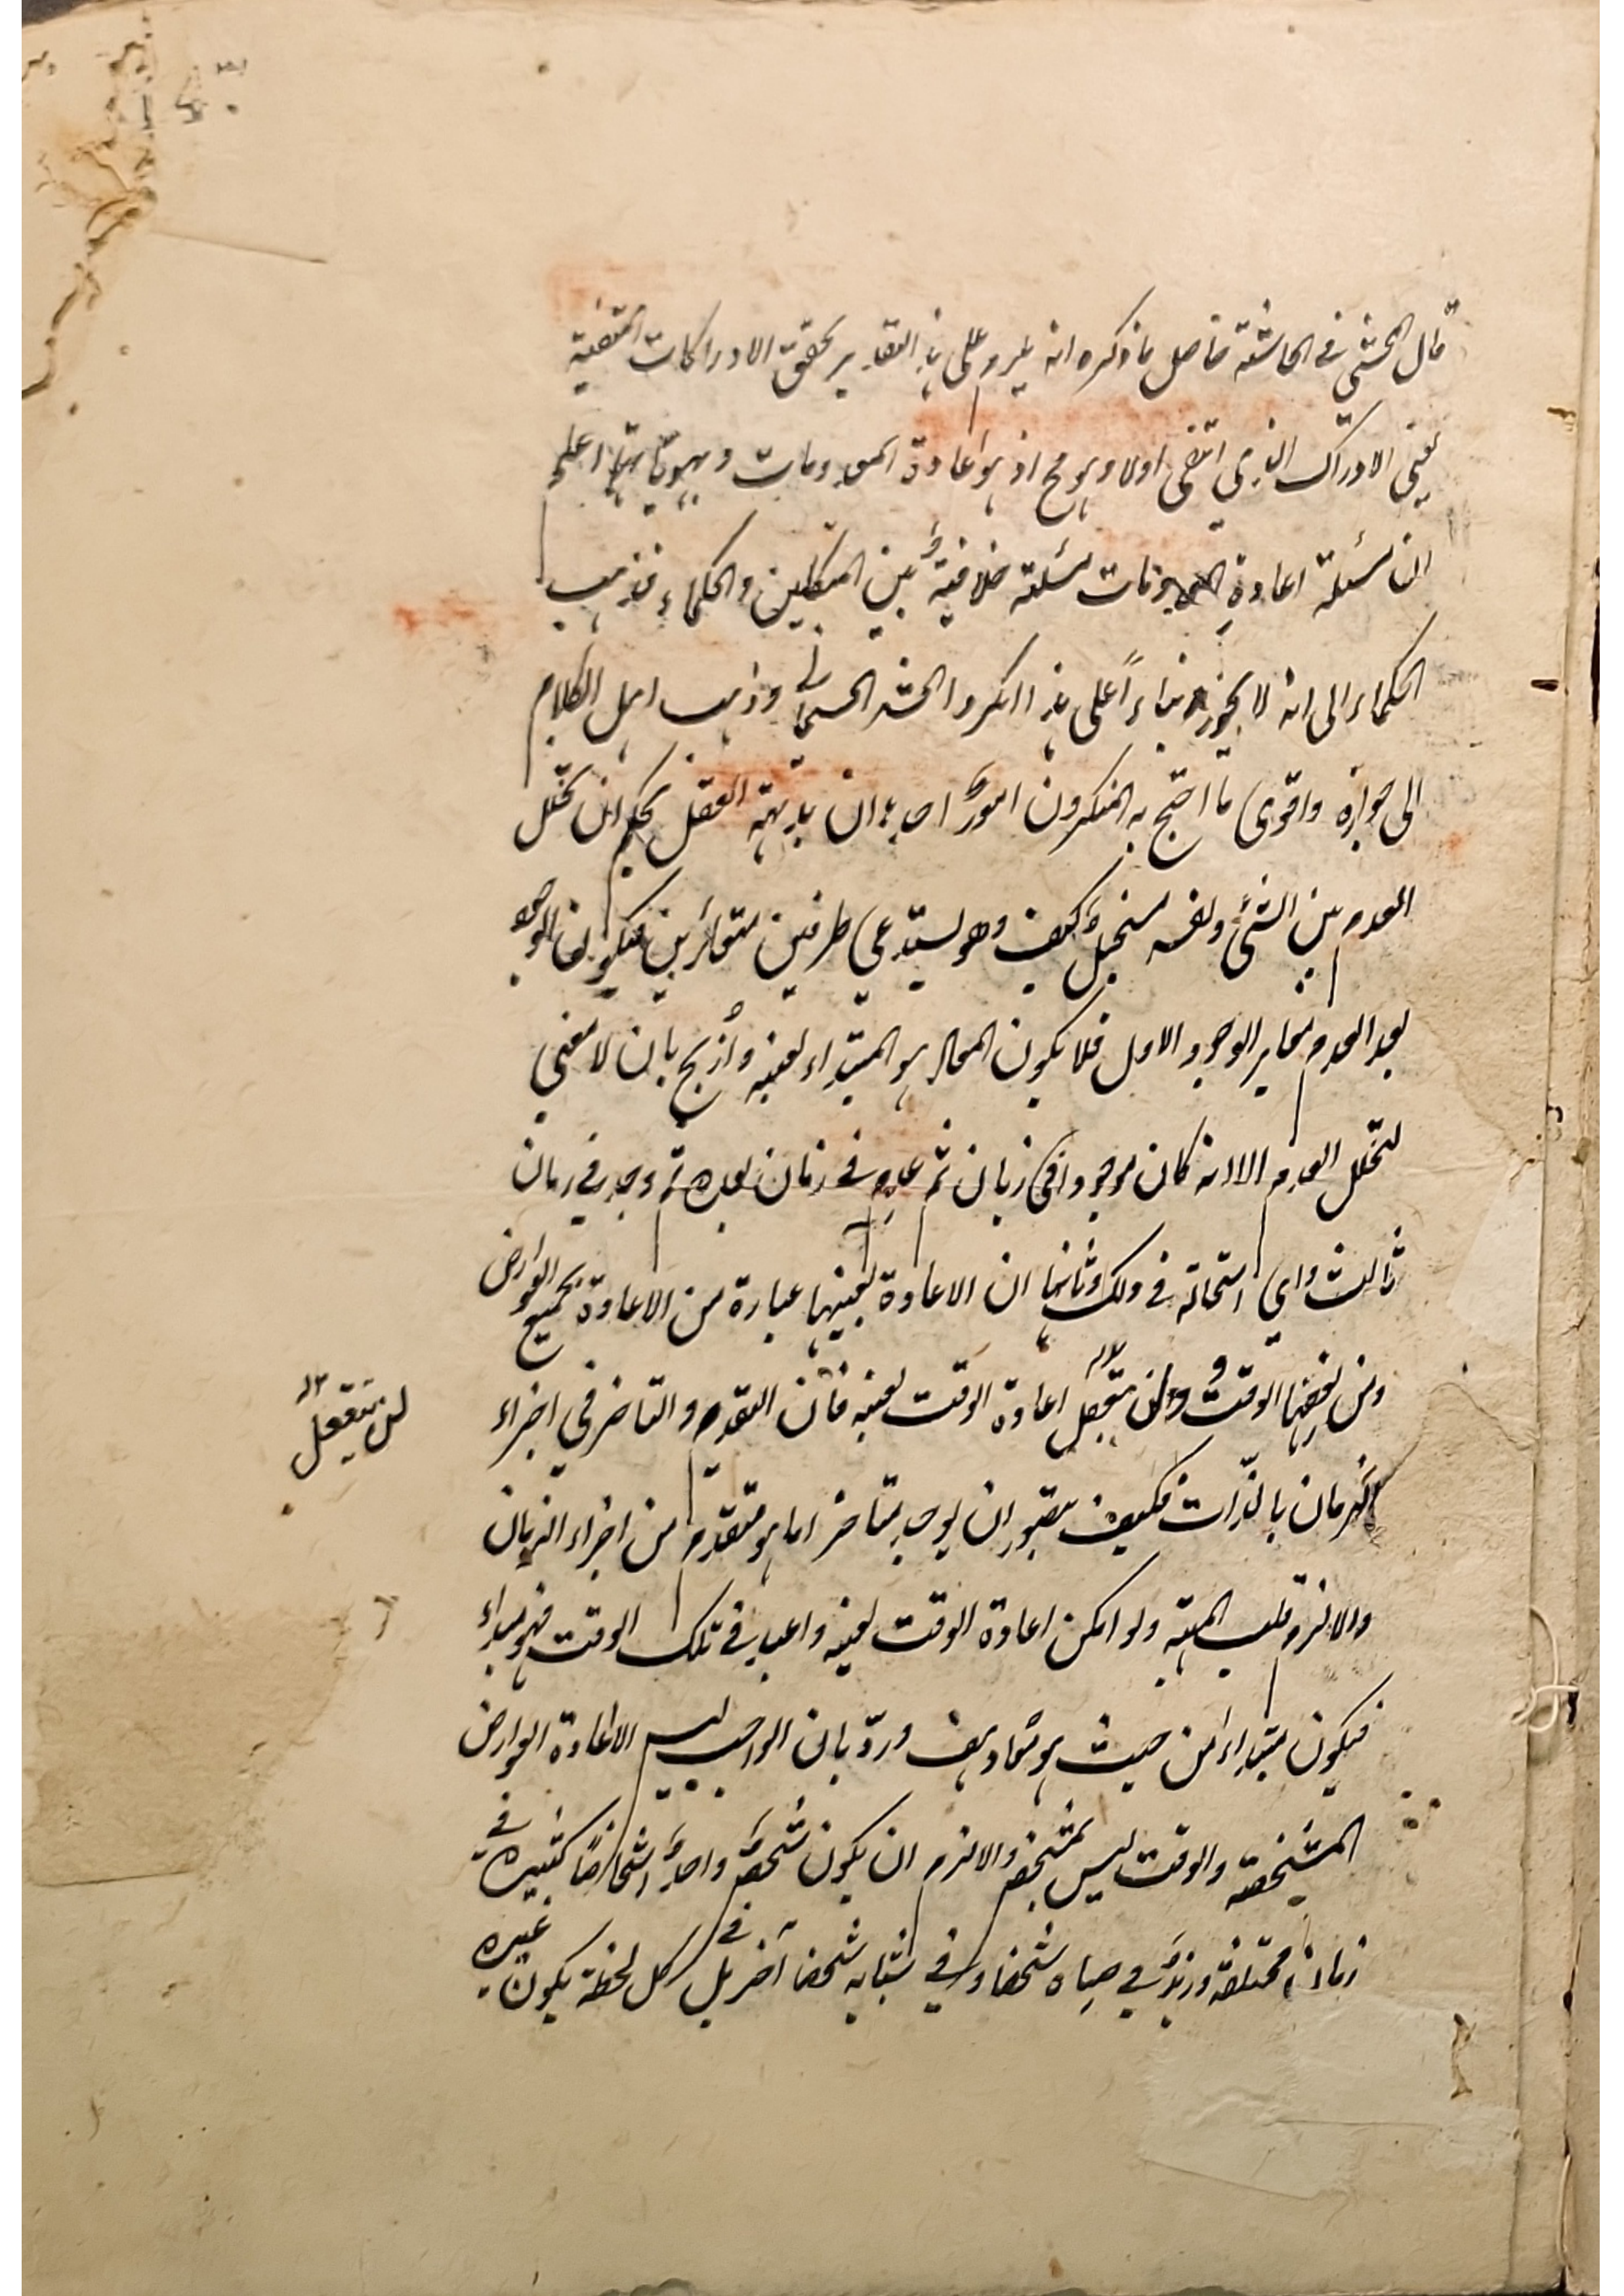 قال المحشي في الحاشية حاصل ما ذكره انه يلزم على هذا التقدير تحقق الادراكات المنتفية
يعني الادراك الذي انتفى اولا وهو مح اذ هو اعادة المعدومات وههنا اعلم
ان مسئلة اعادة المعدومات مسئلة خلافية بين المتكلمين والحكماء فذهب
الحكماء الى انه لا يجوز بناءً على هذا انكروا الحشر الجسمانى وذهب اهل الكلام
الى جوازه واقوى ما احتج به المنكرون امور احدها ان بديهة العقل يحكم ان تخلل
العدم بين الشئ ونفسه مستحيل كيف وهو يستدعي طرفين متغائرين فيكون الوجود
بعد العدم مغاير الوجود الاول فلا يكون المعاد هو المبتداء بعينه وازيح بان لا معنى
لتخلل العدم الا انه كان موجودا في زمان ثم عدم في زمان بعده ثم وجد في زمان
ثالث واي استحالة في ذلك وثانيها ان الاعادة بعينها عبارة من الاعادة بجميع العوارض
ومن بعضها الوقت ولن يتعقل اعادة الوقت بعينه فان التقدم والتاخر في اجزاء
لن يتعقل
الزمان بالذات فكيف يتصور ان يوجد متاخر اما هو متقدم من اجزاء الزمان
والا لزم قلب المهية ولو امكن اعادة الوقت بعينه واعيد في تلك الوقت فهو مبداء
فيكون مبتداء من حيث هو معاد هف ورد بان الواجب ليس الا اعادة العوارض
المشخصة والوقت ليس بمشخص والا لزم ان يكون شخص واحد اشخاصاً كثيرة في
زمان مختلفة وزيد في صباه شخصا وفي شبابه شخصا آخر بل في كل لحظة يكون غيره